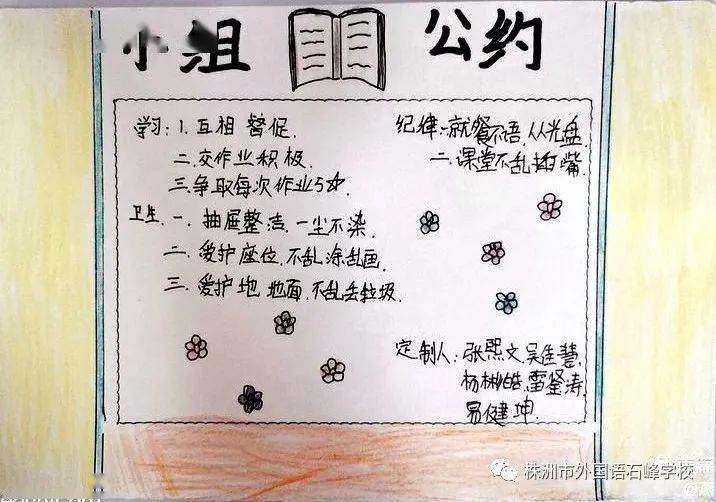 小组 公约
学习：1. 互相 督促.
二. 交作业积极.
三. 争取每次作业5☆
卫生. 一. 抽屉整洁. 一尘不染.
二. 爱护座位, 不乱涂乱画.
三. 爱护地 地面, 不乱丢垃圾.
纪律：一. 就餐不语, 从光盘.
二. 课堂不乱插嘴.
定制人：张熙文. 吴佳慧.
杨彬皓. 雷
易健坤.
株洲市外国语石峰学校